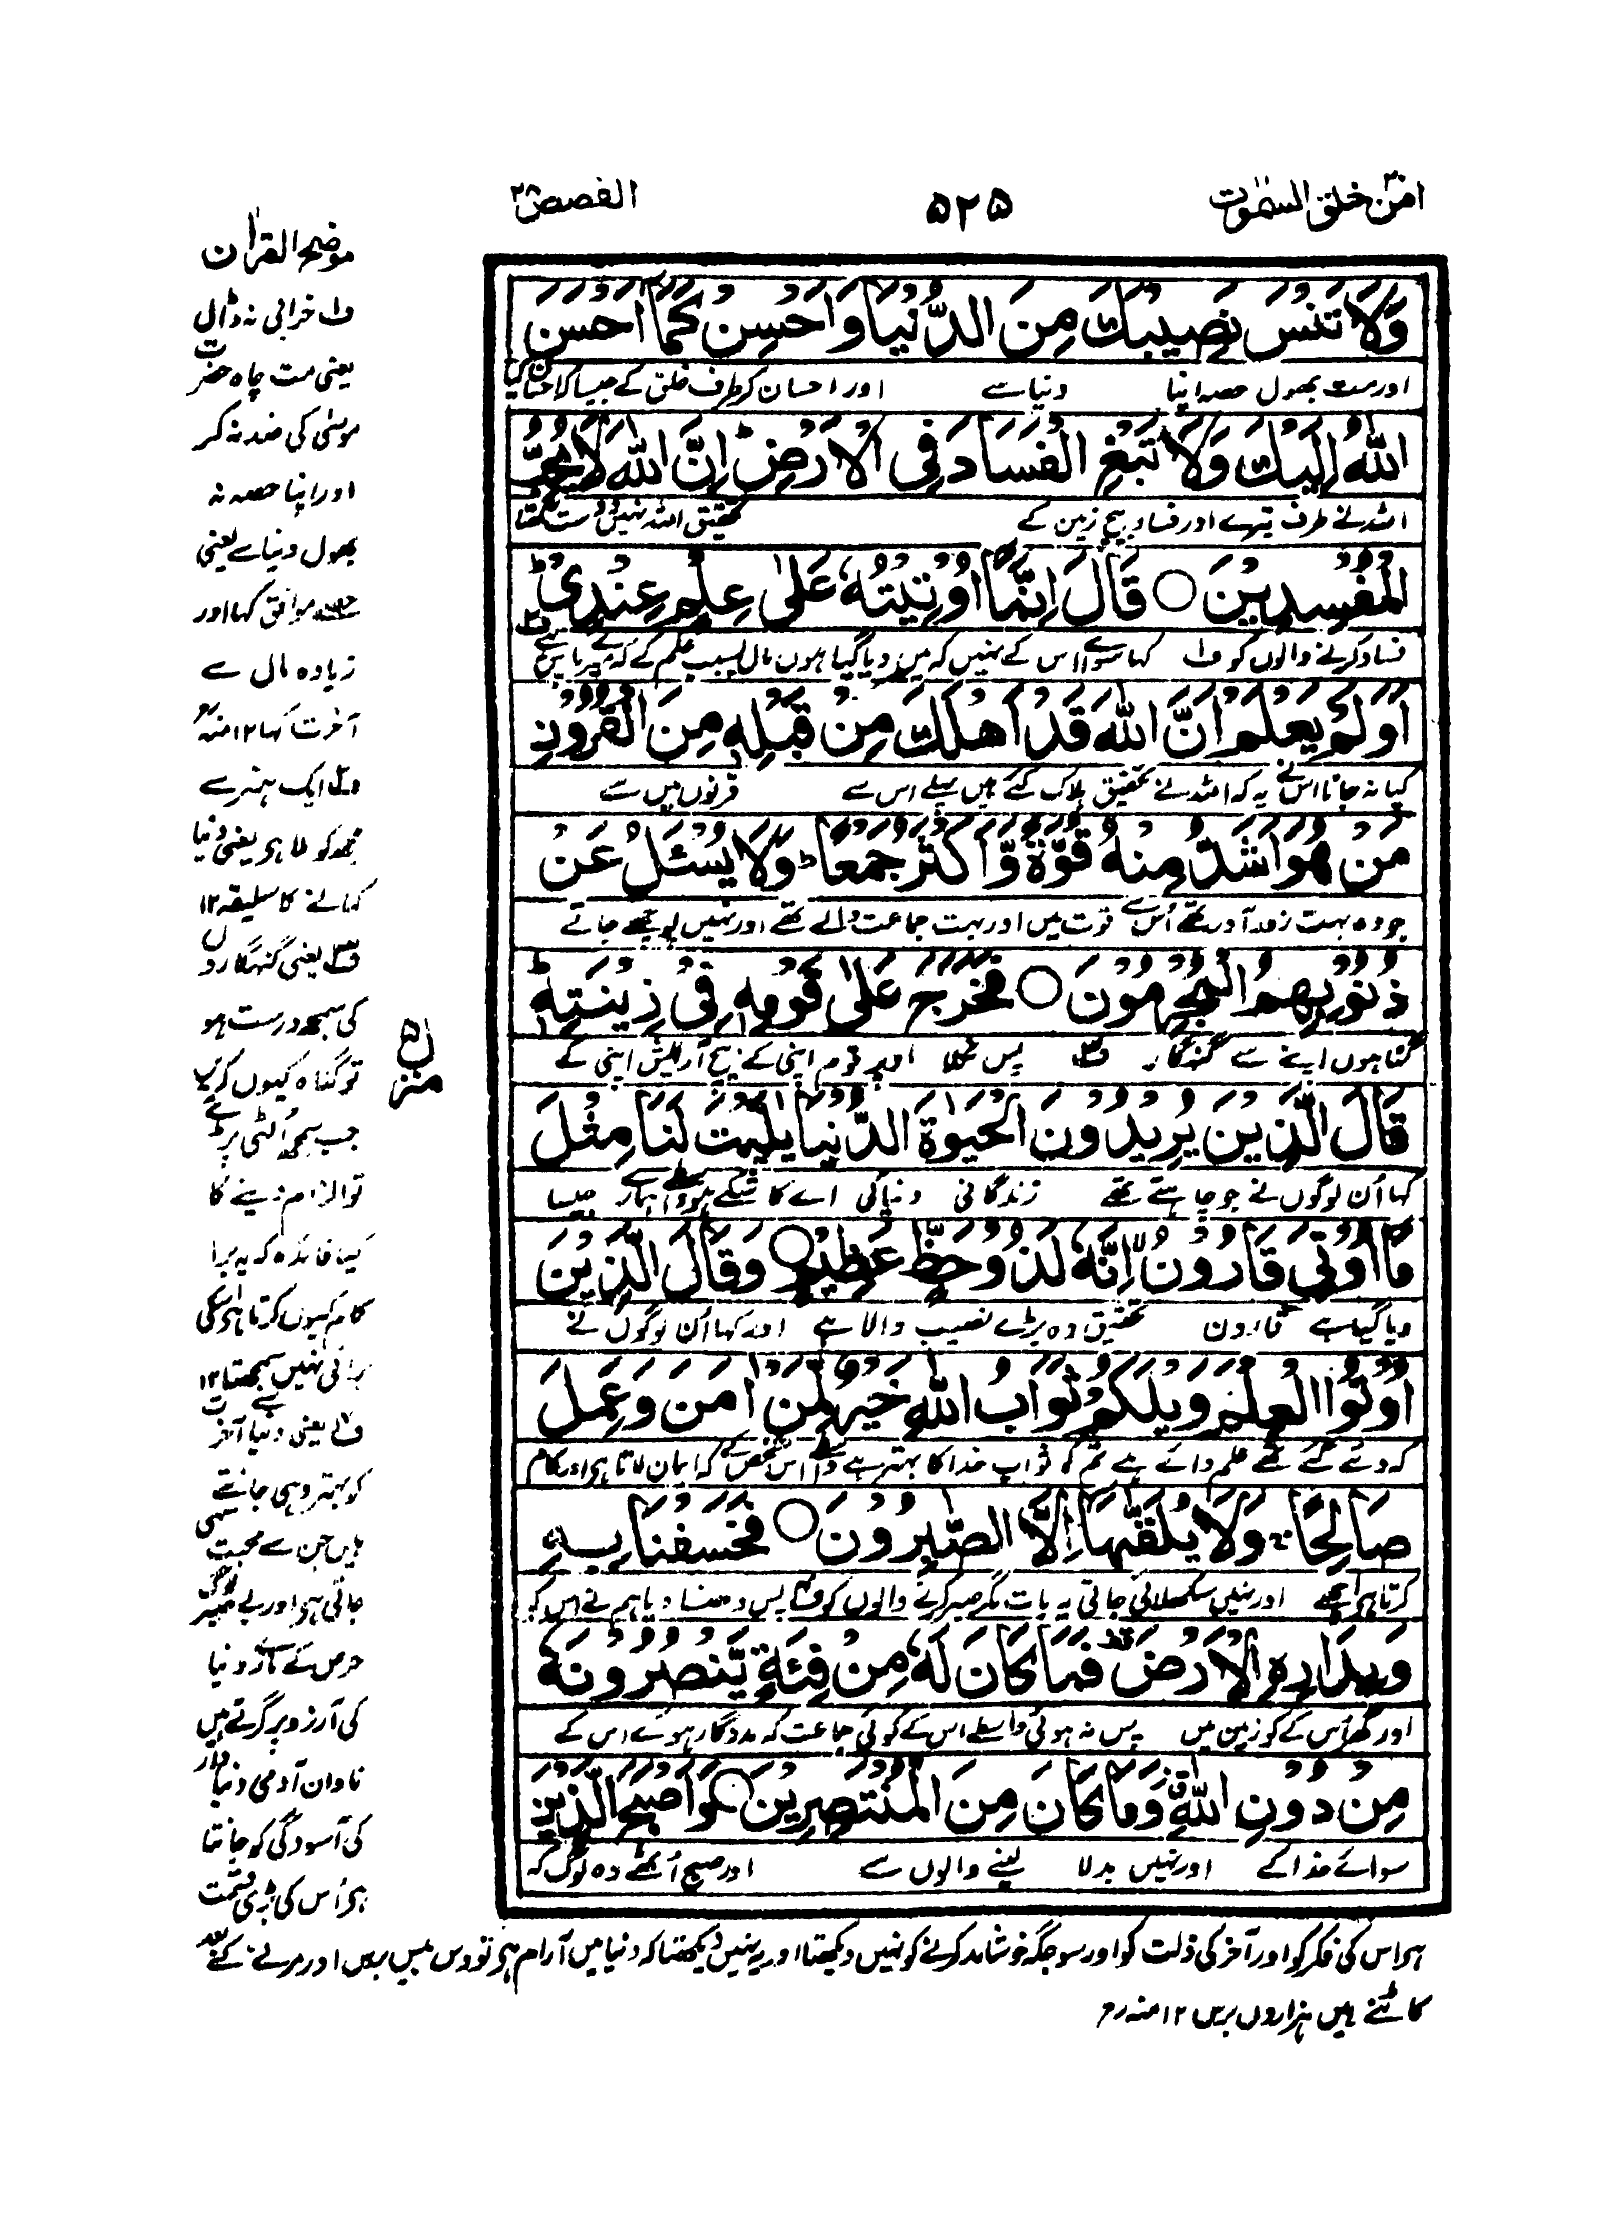 امن خلق السموت ۲۰
۵۲۵
القصص ۲۸
وَلَا تَنْسَ نَصِيْبَكَ مِنَ الدُّنْيَا وَاَحْسِنْ كَمَآ اَحْسَنَ
اور مت بھول حصہ اپنا دنیا سے اور احسان کر طرف خلق کے جیسا کہ احسان کیا
اللّٰهُ اِلَيْكَ وَلَا تَبْغِ الْفَسَادَ فِي الْاَرْضِ ط اِنَّ اللّٰهَ لَا يُحِبُّ
اللہ نے طرف تیرے اور فساد بیچ زمین کے تحقیق اللہ نہیں دوست رکھتا
الْمُفْسِدِيْنَ ○ قَالَ اِنَّمَآ اُوْتِيْتُهٗ عَلٰى عِلْمٍ عِنْدِيْ ط
فساد کرنے والوں کو ف۱ کہا سوا اس کے نہیں کہ میں دیا گیا ہوں مال بسبب علم کے کہ میرے پاس ہے ف۲
اَوَلَمْ يَعْلَمْ اَنَّ اللّٰهَ قَدْ اَهْلَكَ مِنْ قَبْلِهٖ مِنَ الْقُرُوْنِ
کیا نہ جانا اس نے یہ کہ اللہ نے تحقیق ہلاک کئے ہیں پہلے اس سے قرنوں میں سے
مَنْ هُوَ اَشَدُّ مِنْهُ قُوَّةً وَّاَكْثَرُ جَمْعًا ط وَلَا يُسْـَٔلُ عَنْ
جو وہ بہت زور آور تھے اُس سے قوت میں اور بہت جماعت والے تھے اور نہیں پوچھے جاتے
ذُنُوْبِهِمُ الْمُجْرِمُوْنَ ○ فَخَرَجَ عَلٰى قَوْمِهٖ فِيْ زِيْنَتِهٖ ط
گناہوں اپنے سے گنہگار ف۳ پس نکلا اوپر قوم اپنی کے بیچ آرایش اپنی کے
قَالَ الَّذِيْنَ يُرِيْدُوْنَ الْحَيٰوةَ الدُّنْيَا يٰلَيْتَ لَنَا مِثْلَ
کہا اُن لوگوں نے جو چاہتے تھے زندگانی دنیا کی اے کاشکے ہووے واسطے ہمارے جیسا
مَآ اُوْتِيَ قَارُوْنُ لا اِنَّهٗ لَذُوْ حَظٍّ عَظِيْمٍ ○ وَقَالَ الَّذِيْنَ
دیا گیا ہے قارون تحقیق وہ بڑے نصیب والا ہے اور کہا اُن لوگوں نے
اُوْتُوا الْعِلْمَ وَيْلَكُمْ ثَوَابُ اللّٰهِ خَيْرٌ لِّمَنْ اٰمَنَ وَعَمِلَ
کہ دئے گئے تھے علم وائے ہے تم کو ثواب خدا کا بہتر ہے واسطے اس شخص کے کہ ایمان لاتا ہی اور کام
صَالِحًا ج وَلَا يُلَقّٰىهَآ اِلَّا الصّٰبِرُوْنَ ○ فَخَسَفْنَا بِهٖ
کرتا ہی اچھے اور نہیں سکھلائی جاتی یہ بات مگر صبر کرنے والوں کو ف۴ پس دھنسا دیا ہم نے اس کو
وَبِدَارِهِ الْاَرْضَ قف فَمَا كَانَ لَهٗ مِنْ فِئَةٍ يَّنْصُرُوْنَهٗ
اور گھر اُس کے کو زمین میں پس نہ ہوئی واسطے اس کے کوئی جماعت کہ مددگار ہوئے اس کے
مِنْ دُوْنِ اللّٰهِ ق وَمَا كَانَ مِنَ الْمُنْتَصِرِيْنَ ○ وَاَصْبَحَ الَّذِيْنَ
سوائے خدا کے اور نہیں بدلا لینے والوں سے اور صبح اُٹھے وہ لوگ کہ
منزل ۵
موضح القرآن
ف۱ خرابی نہ ڈال
یعنی مت چاہ حضرت
موسیٰ کی ضد نہ کر
اور اپنا حصہ نہ
بھول دنیا سے یعنی
حصہ موافق کھا اور
زیادہ مال سے
آخرت کما ۱۲ منہ رح
ف۲ ایک ہنر سے
مجھ کو ملا ہی یعنی دنیا
کمانے کا سلیقہ ۱۲
ف۳ یعنی گنہگاروں
کی سمجھ درست ہو
تو گناہ کیوں کریں
جب سمجھ اُلٹی پڑے
تو الزام دینے کا
کیا فائدہ کہ یہ برا
کام کیوں کرتا ہی اسکی
برائی نہیں سمجھتا ۱۲
ف۴ یعنی دنیا سے آخرت
کو بہتر وہی جانتے
ہیں جن سے محبت سہی
جاتی ہی اور بے صبر لوگ
حرص کے مارے دنیا
کی آرزو پر گرتے ہیں
نادان آدمی دنیا دار
کی آسودگی کو جانتا
ہی اُس کی بڑی قسمت
ہی اس کی فکر کو اور آخر کی ذلت کو اور سو جگہ خوشامد کرنے کو نہیں دیکھتا اور یہ نہیں دیکھتا کہ دنیا میں آرام ہی تو دس بیس برس اور مرنے کے بعد
کاٹنے ہیں ہزاروں برس ۱۲ منہ رح